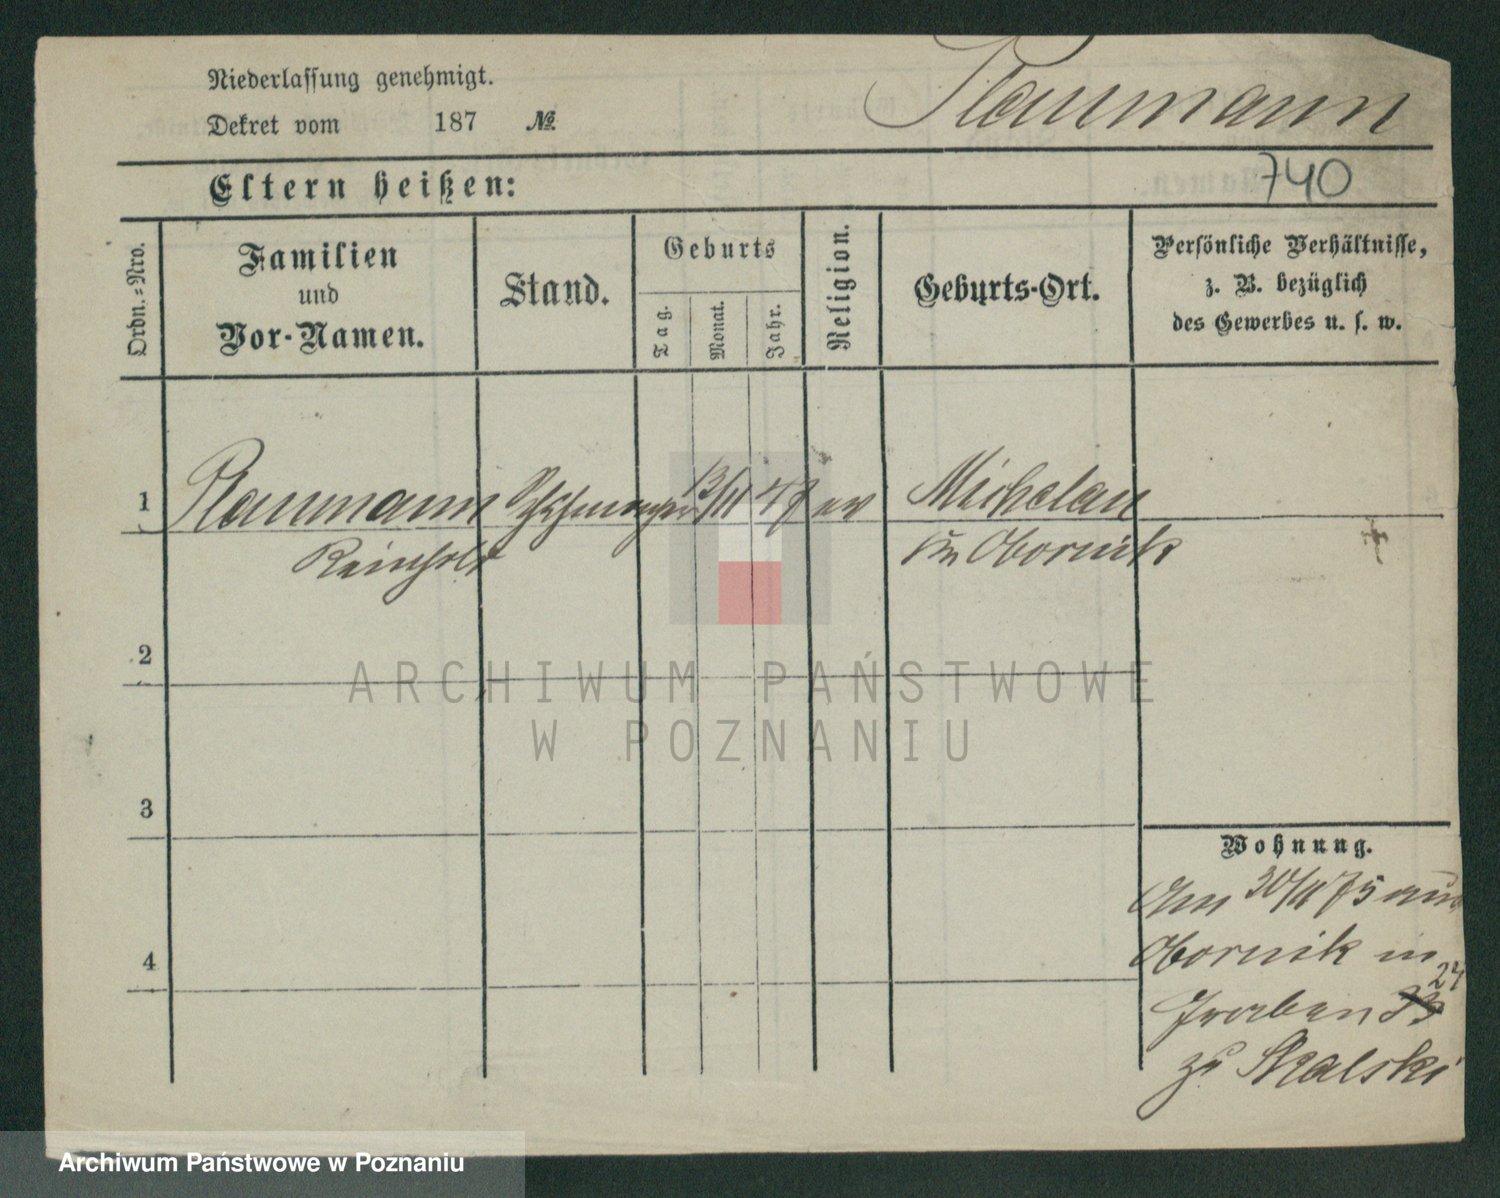 Niederlassung genehmigt.
Dekret vom 187 №
Plaumann
740
Eltern heißen:
Ordn.=Nro.
Familien
und
Vor-Namen.
Stand.
Geburts
Tag.
Monat.
Jahr.
Religion.
Geburts-Ort.
Persönliche Verhältnisse,
z. B. bezüglich
des Gewerbes u. s. w.
1 Plaumann 13/11 47 ev
Reinhold Kr Obornik
2
3
4
Wohnung.
Am 30/11 75 aus
Obornik in
Graben 24
zu Skalski
ARCHIWUM PAŃSTWOWE
W POZNANIU
Archiwum Państwowe w Poznaniu